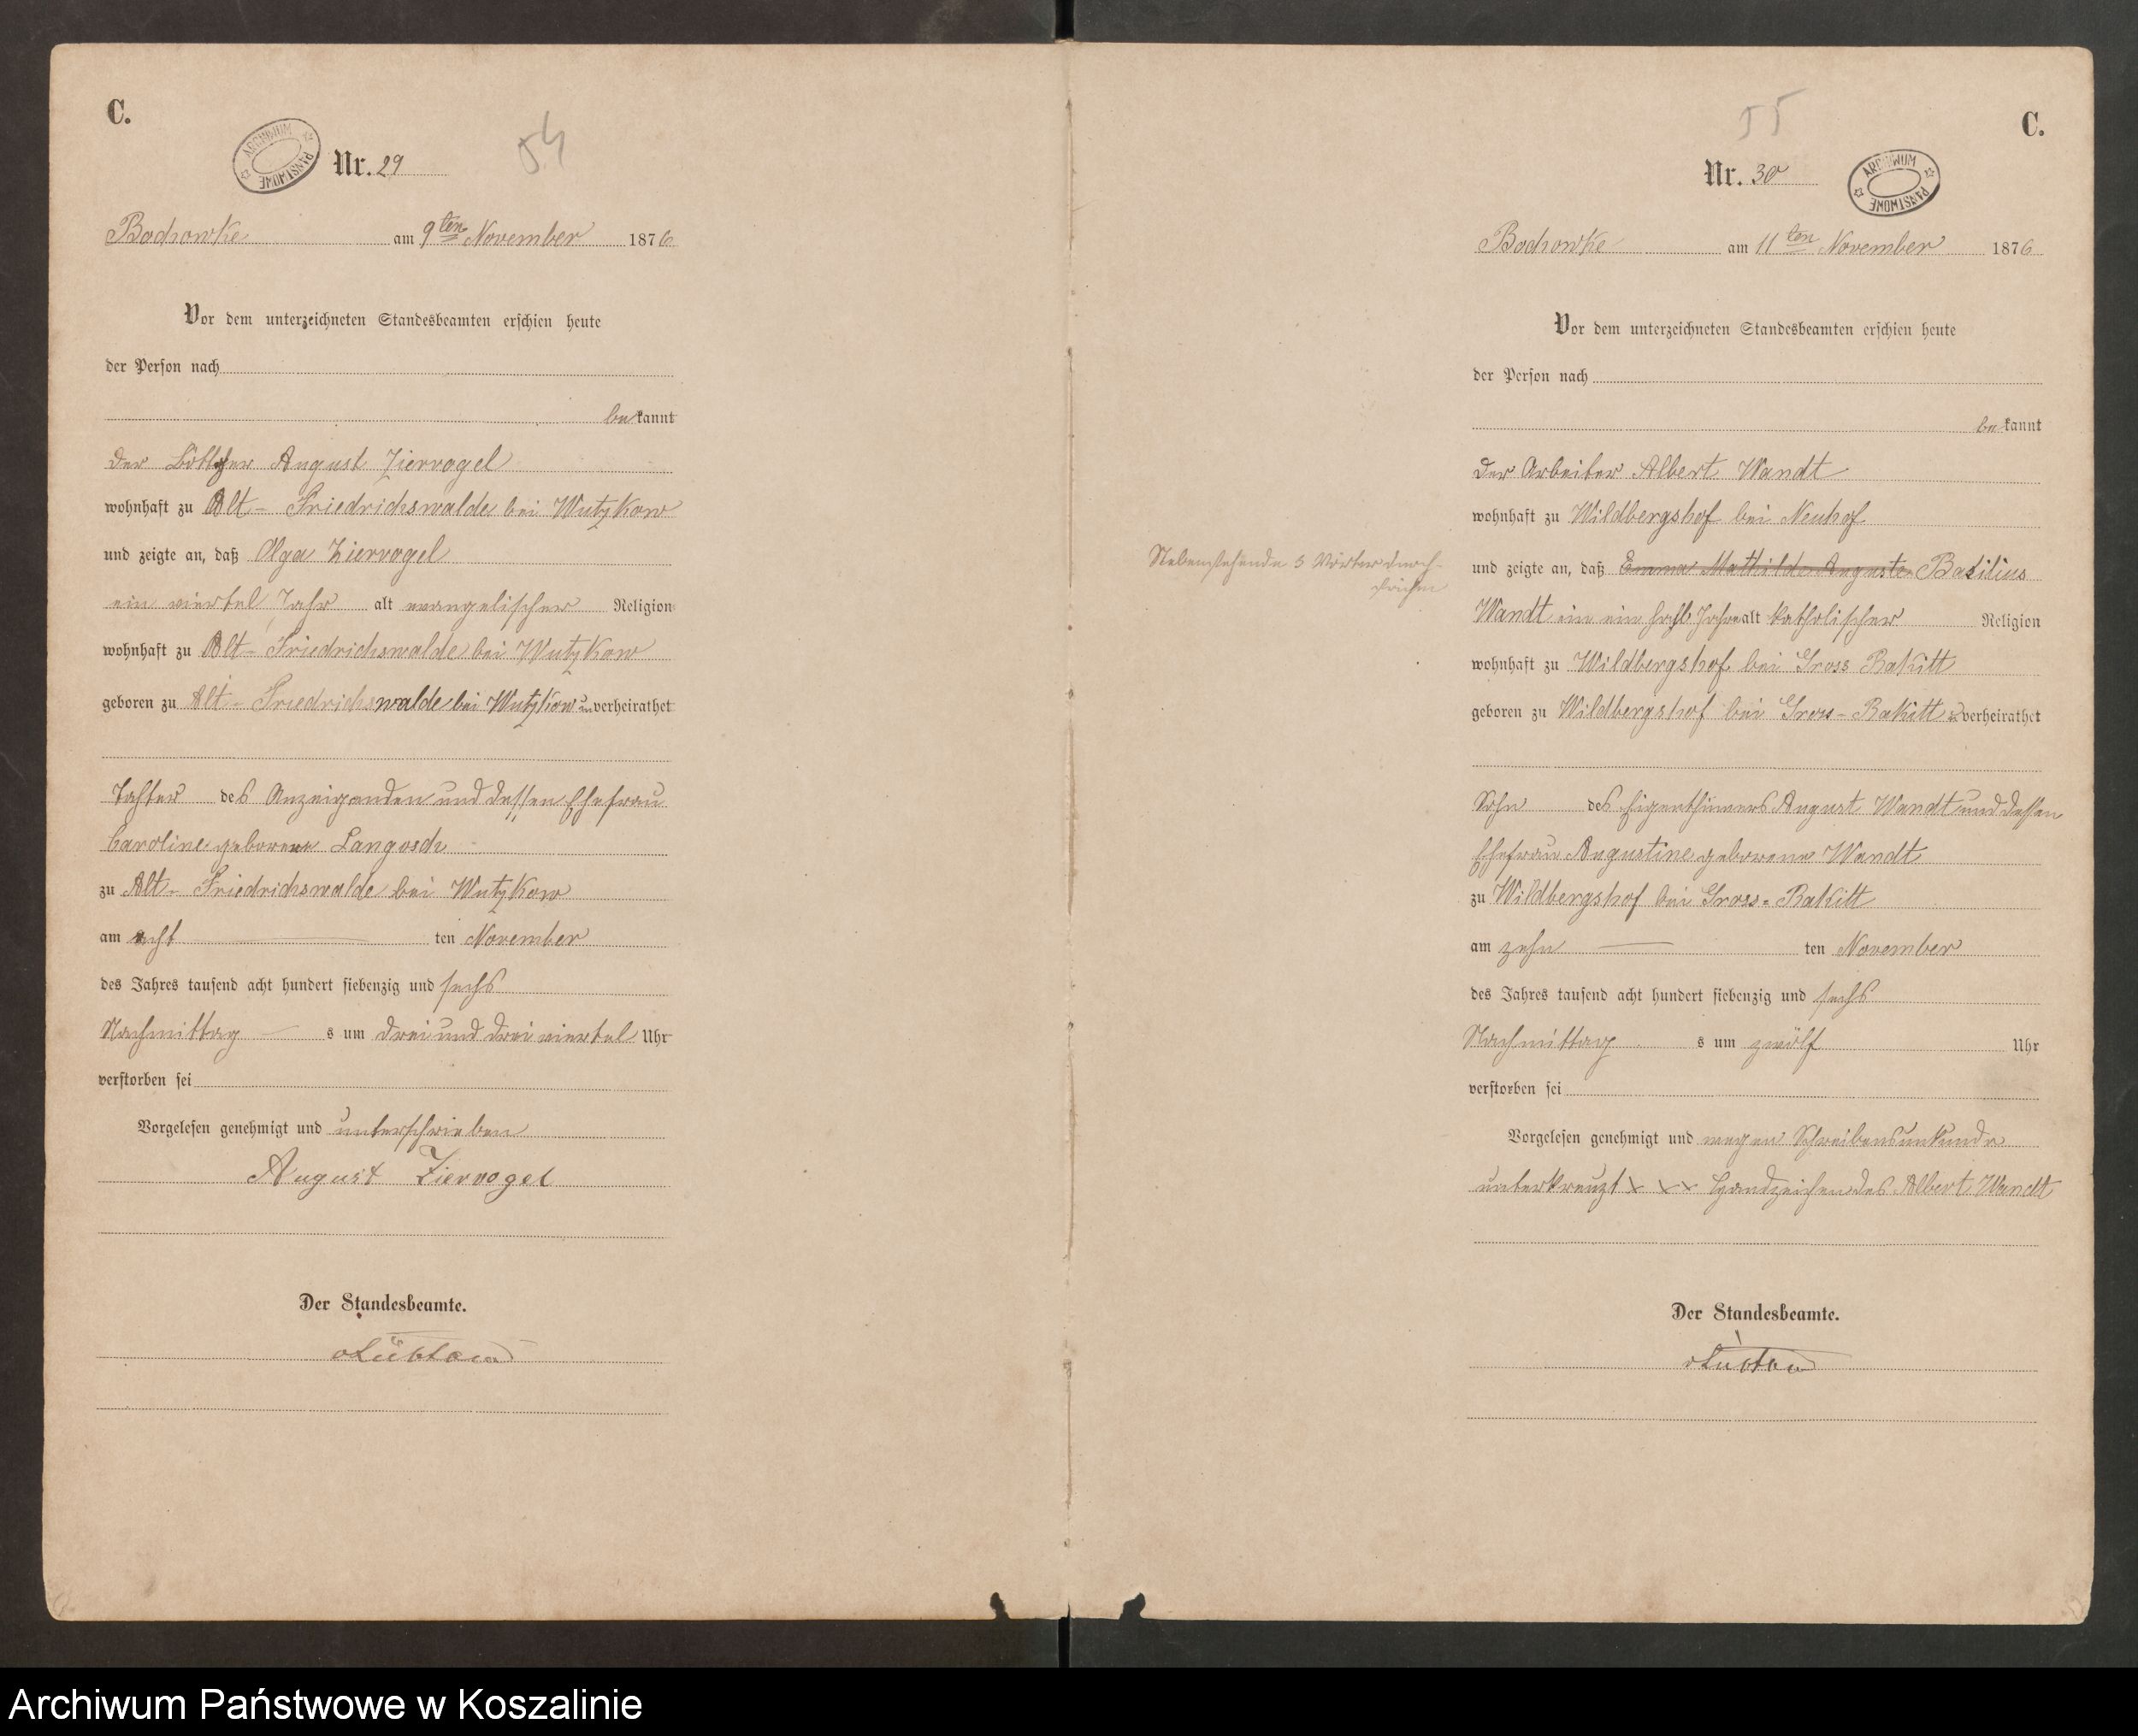 C.
ARCHIWUM PAŃSTWOWE
54
Nr. 29
Bochowke am 9ten November 1876
Vor dem unterzeichneten Standesbeamten erschien heute
der Person nach
bekannt
der Böttcher August Ziervogel
wohnhaft zu Alt-Friedrichswalde bei Wutzkow
und zeigte an, daß Olga Ziervogel
ein viertel Jahr alt evangelischer Religion
wohnhaft zu Alt-Friedrichswalde bei Wutzkow
geboren zu Alt-Friedrichswalde bei Wutzkow unverheirathet
Tochter des Anzeigenden und dessen Ehefrau
Caroline geborene Langosch
zu Alt-Friedrichswalde bei Wutzkow
am acht ten November
des Jahres tausend acht hundert siebenzig und sechs
Nachmittag s um drei und drei viertel Uhr
verstorben sei
Vorgelesen genehmigt und unterschrieben
August Ziervogel
Der Standesbeamte.
vLübtow
55
C.
Nr. 30
ARCHIWUM PAŃSTWOWE
Bochowke am 11ten November 1876
Vor dem unterzeichneten Standesbeamten erschien heute
der Person nach
bekannt
der Arbeiter Albert Wandt
wohnhaft zu Wildbergshof bei Neuhof
Nebenstehende 3 Wörter durch-
strichen
und zeigte an, daß Emma Mathilde Auguste Basilius
Wandt ein ein halb Jahre alt katholischer Religion
wohnhaft zu Wildbergshof bei Gross Rakitt
geboren zu Wildbergshof bei Gross-Rakitt unverheirathet
Sohn des Eigenthümers August Wandt und dessen
Ehefrau Augustine geborene Wandt
zu Wildbergshof bei Gross-Rakitt
am zehn ten November
des Jahres tausend acht hundert siebenzig und sechs
Nachmittag s um zwölf Uhr
verstorben sei
Vorgelesen genehmigt und wegen Schreibensunkunde
unterkreuzt x x x Handzeichen des Albert Wandt
Der Standesbeamte.
vLübtow
Archiwum Państwowe w Koszalinie